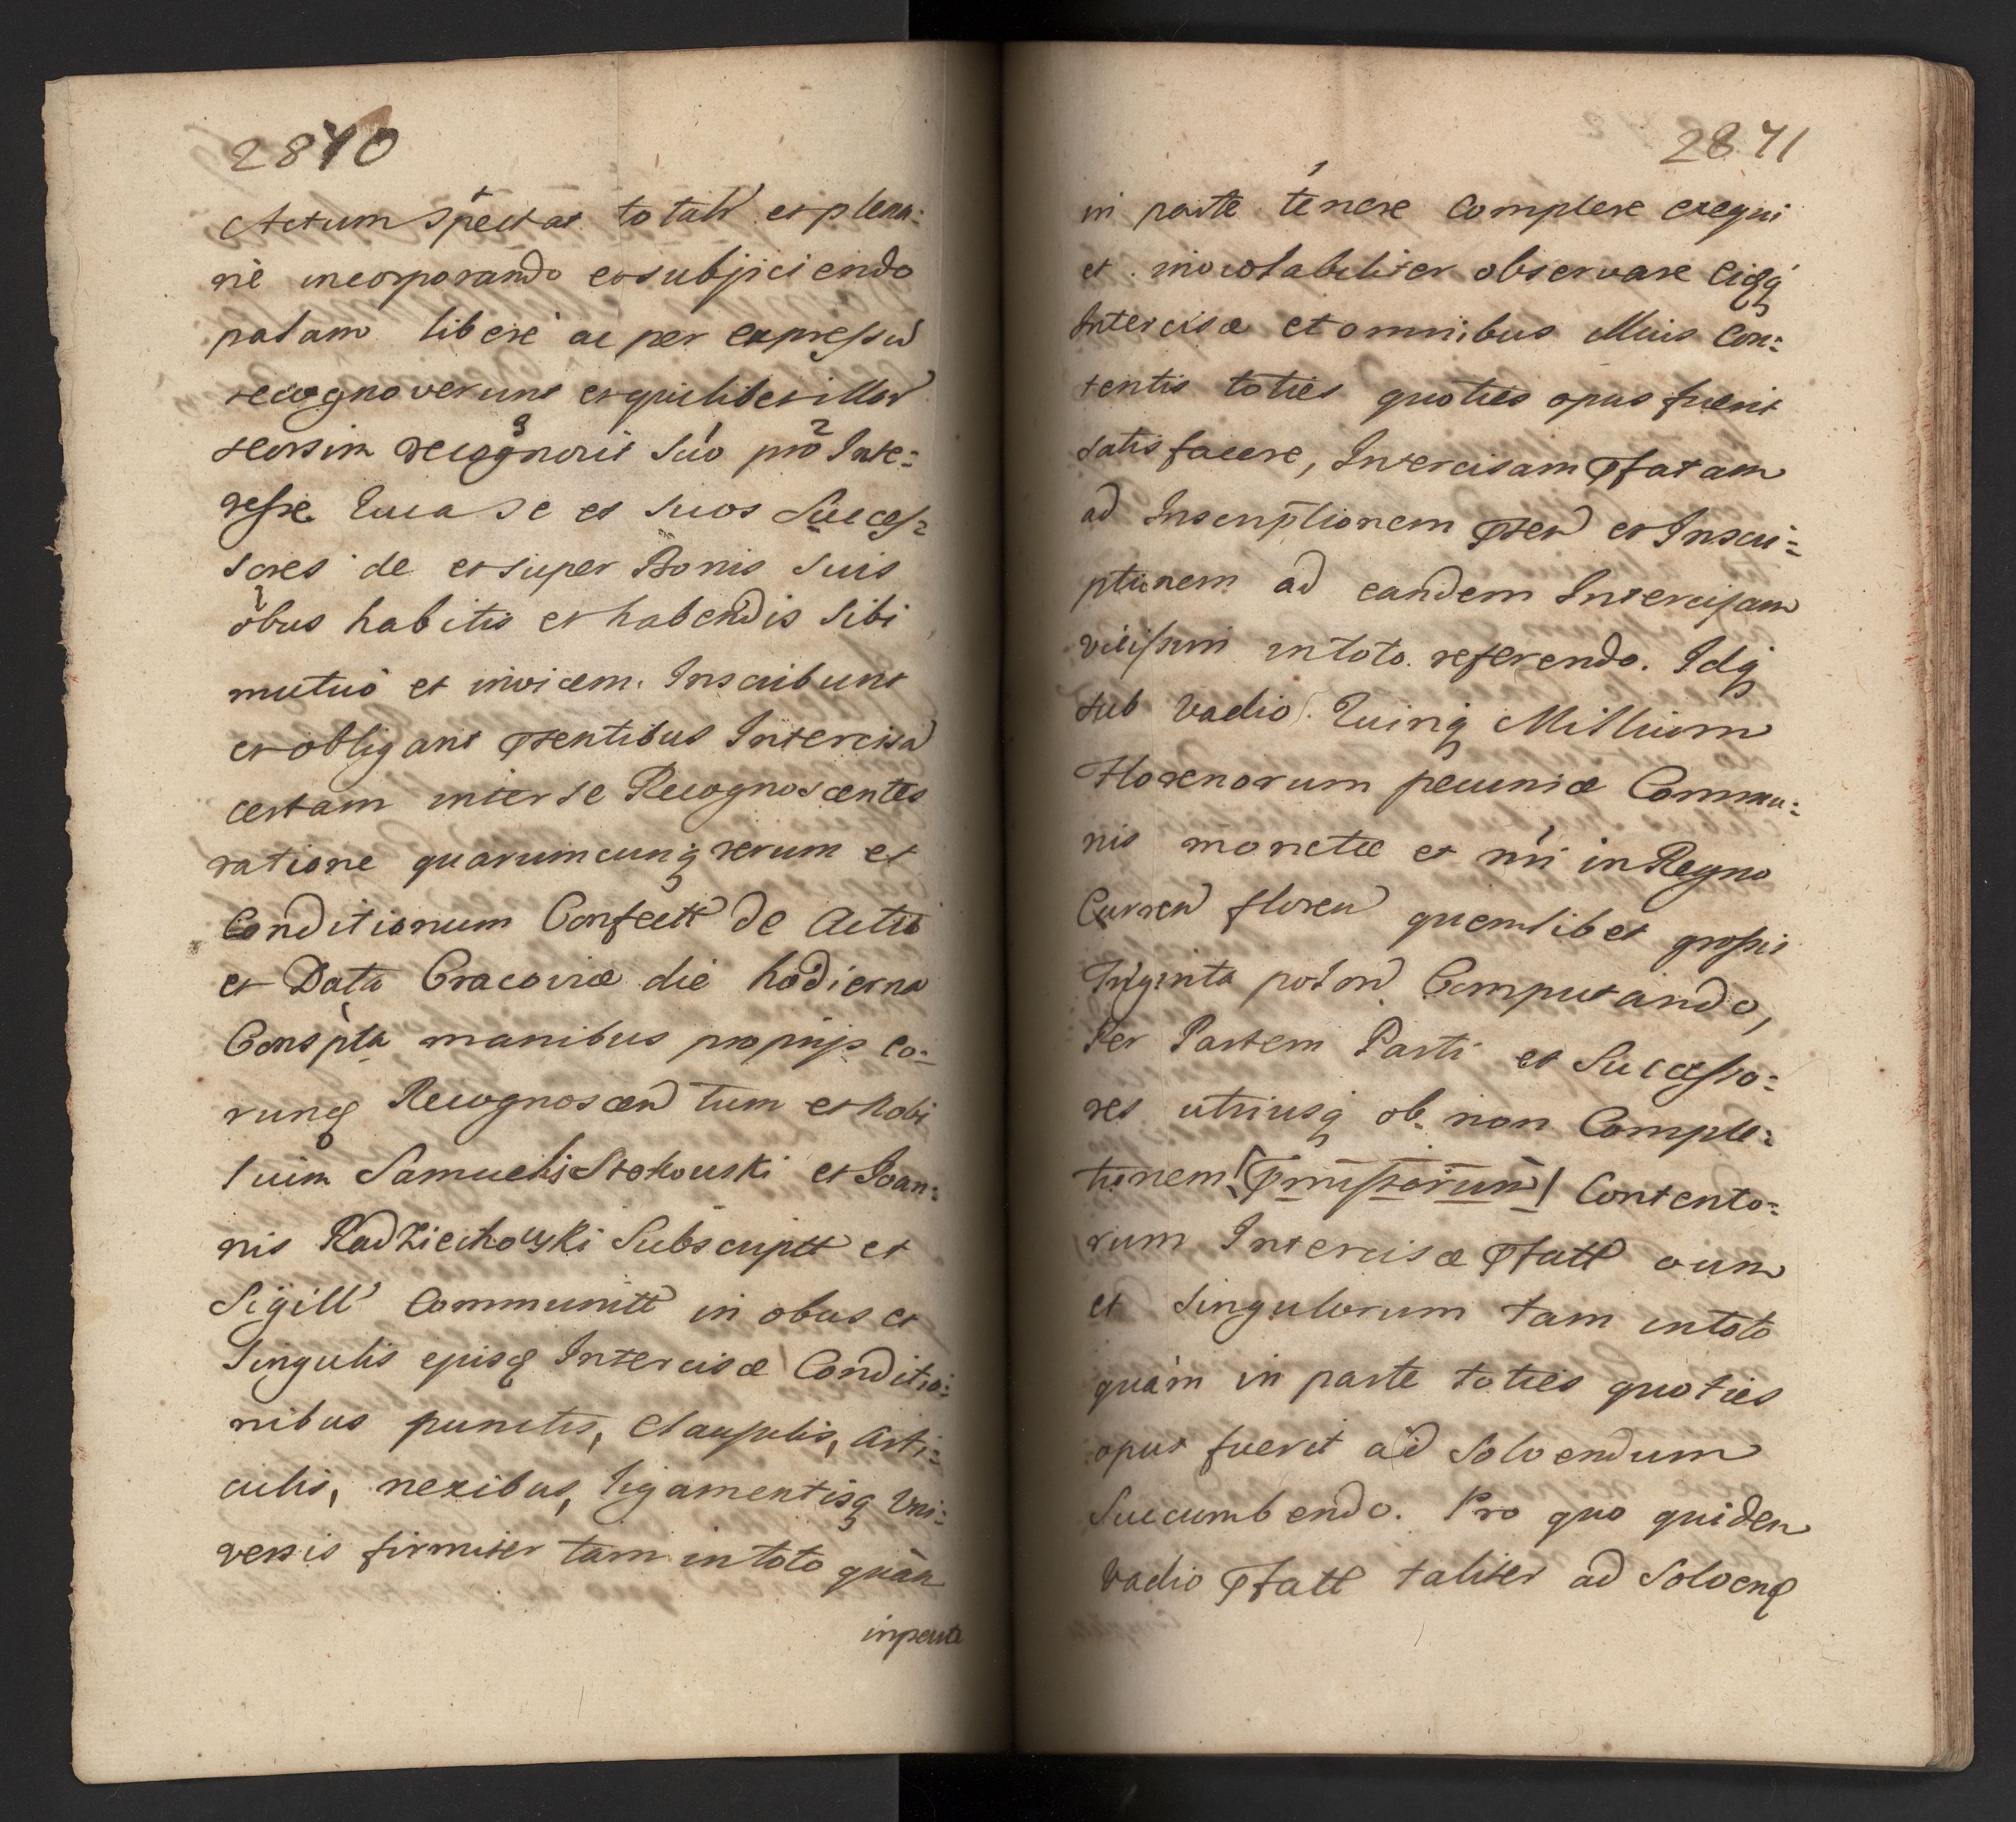 2870
Actum spectat totalr et plena:
riè incorporando et subjiciendo
palam libere ac per expressu
recognoverunt et quilibet illor
seorsim recognovit suo pro Inte:
resse Quia se et suos Succes:
sores de et super Bonis suis
obus habitis et habendis sibi
mutuò et invicem Inscribunt
et obligant pntibus Intercisa
certam inter se Recognoscentes
ratione quarumcunq rerum et
Conditionum Confectt de Actu
et Data Cracoviæ die hodierna
Conspta manibus proprijs eo:
runq Recognoscen tum et Nobi
lium Samuelis Stokowski et Joan:
nis Radziechowski Subscriptt et
Sigill Communitt in obus et
singulis ejusq Intercisæ Conditio:
nibus punctis, Clausulis, Arti:
culis, nexibus, ligamentisq Uni:
versis firmiter tam in toto quàm
in parte
2871
in parte tenere Complere exequi
et inviolabiliter observare eiqq
Intercisæ et omnibus illius Con:
tentis toties quoties opus fuerit
satisfacere, Intercisam pfatam
ad Inscriptionem pnten et Inscri:
ptionem ad eandem Intercisam
vicissim in toto referendo. Idq
sub vadio Quinq Millium
Florenorum pecuniæ Commu:
nis monetæ et nri in Regno
Curren floren quemlibet grossis
Triginta polon Computando,
Per Partem Parti et Successo:
res utriusq ob non Comple:
tionem (pmissorum) Contento:
rum Intercisæ pfatt oium
et singulorum tam in toto
quàm in parte toties quoties
opus fuerit ad solvendum
Succumbendo. Pro quo quidem
Vadio pfatt taliter ad solvenq